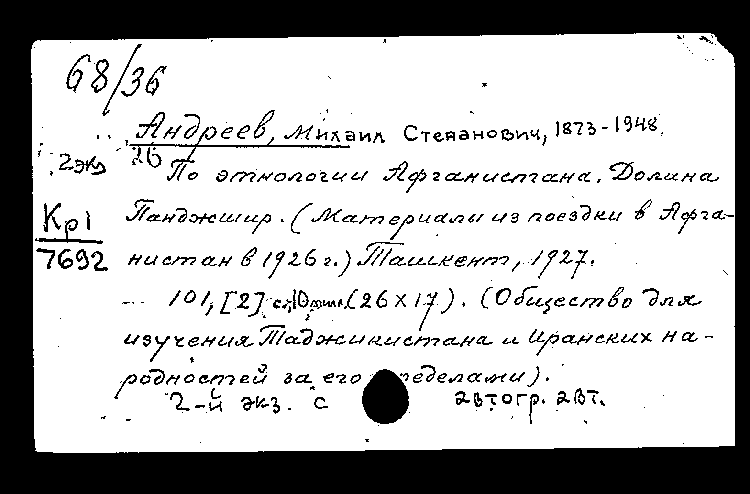 68/36
Андреев, Михаил Степанович, 1873-1948.
2экз
26
По этнологии Афганистана. Долина
Кр1
Панджшир. (Материали из поездки в Афга-
7692
нистан в 1926 г.) Ташкент, 1927.
101, [2] с., (26 х 17). (Общество для
изучения Таджикистана и Иранских на-
родностей за его пределами).
2-й экз. с автогр. авт.